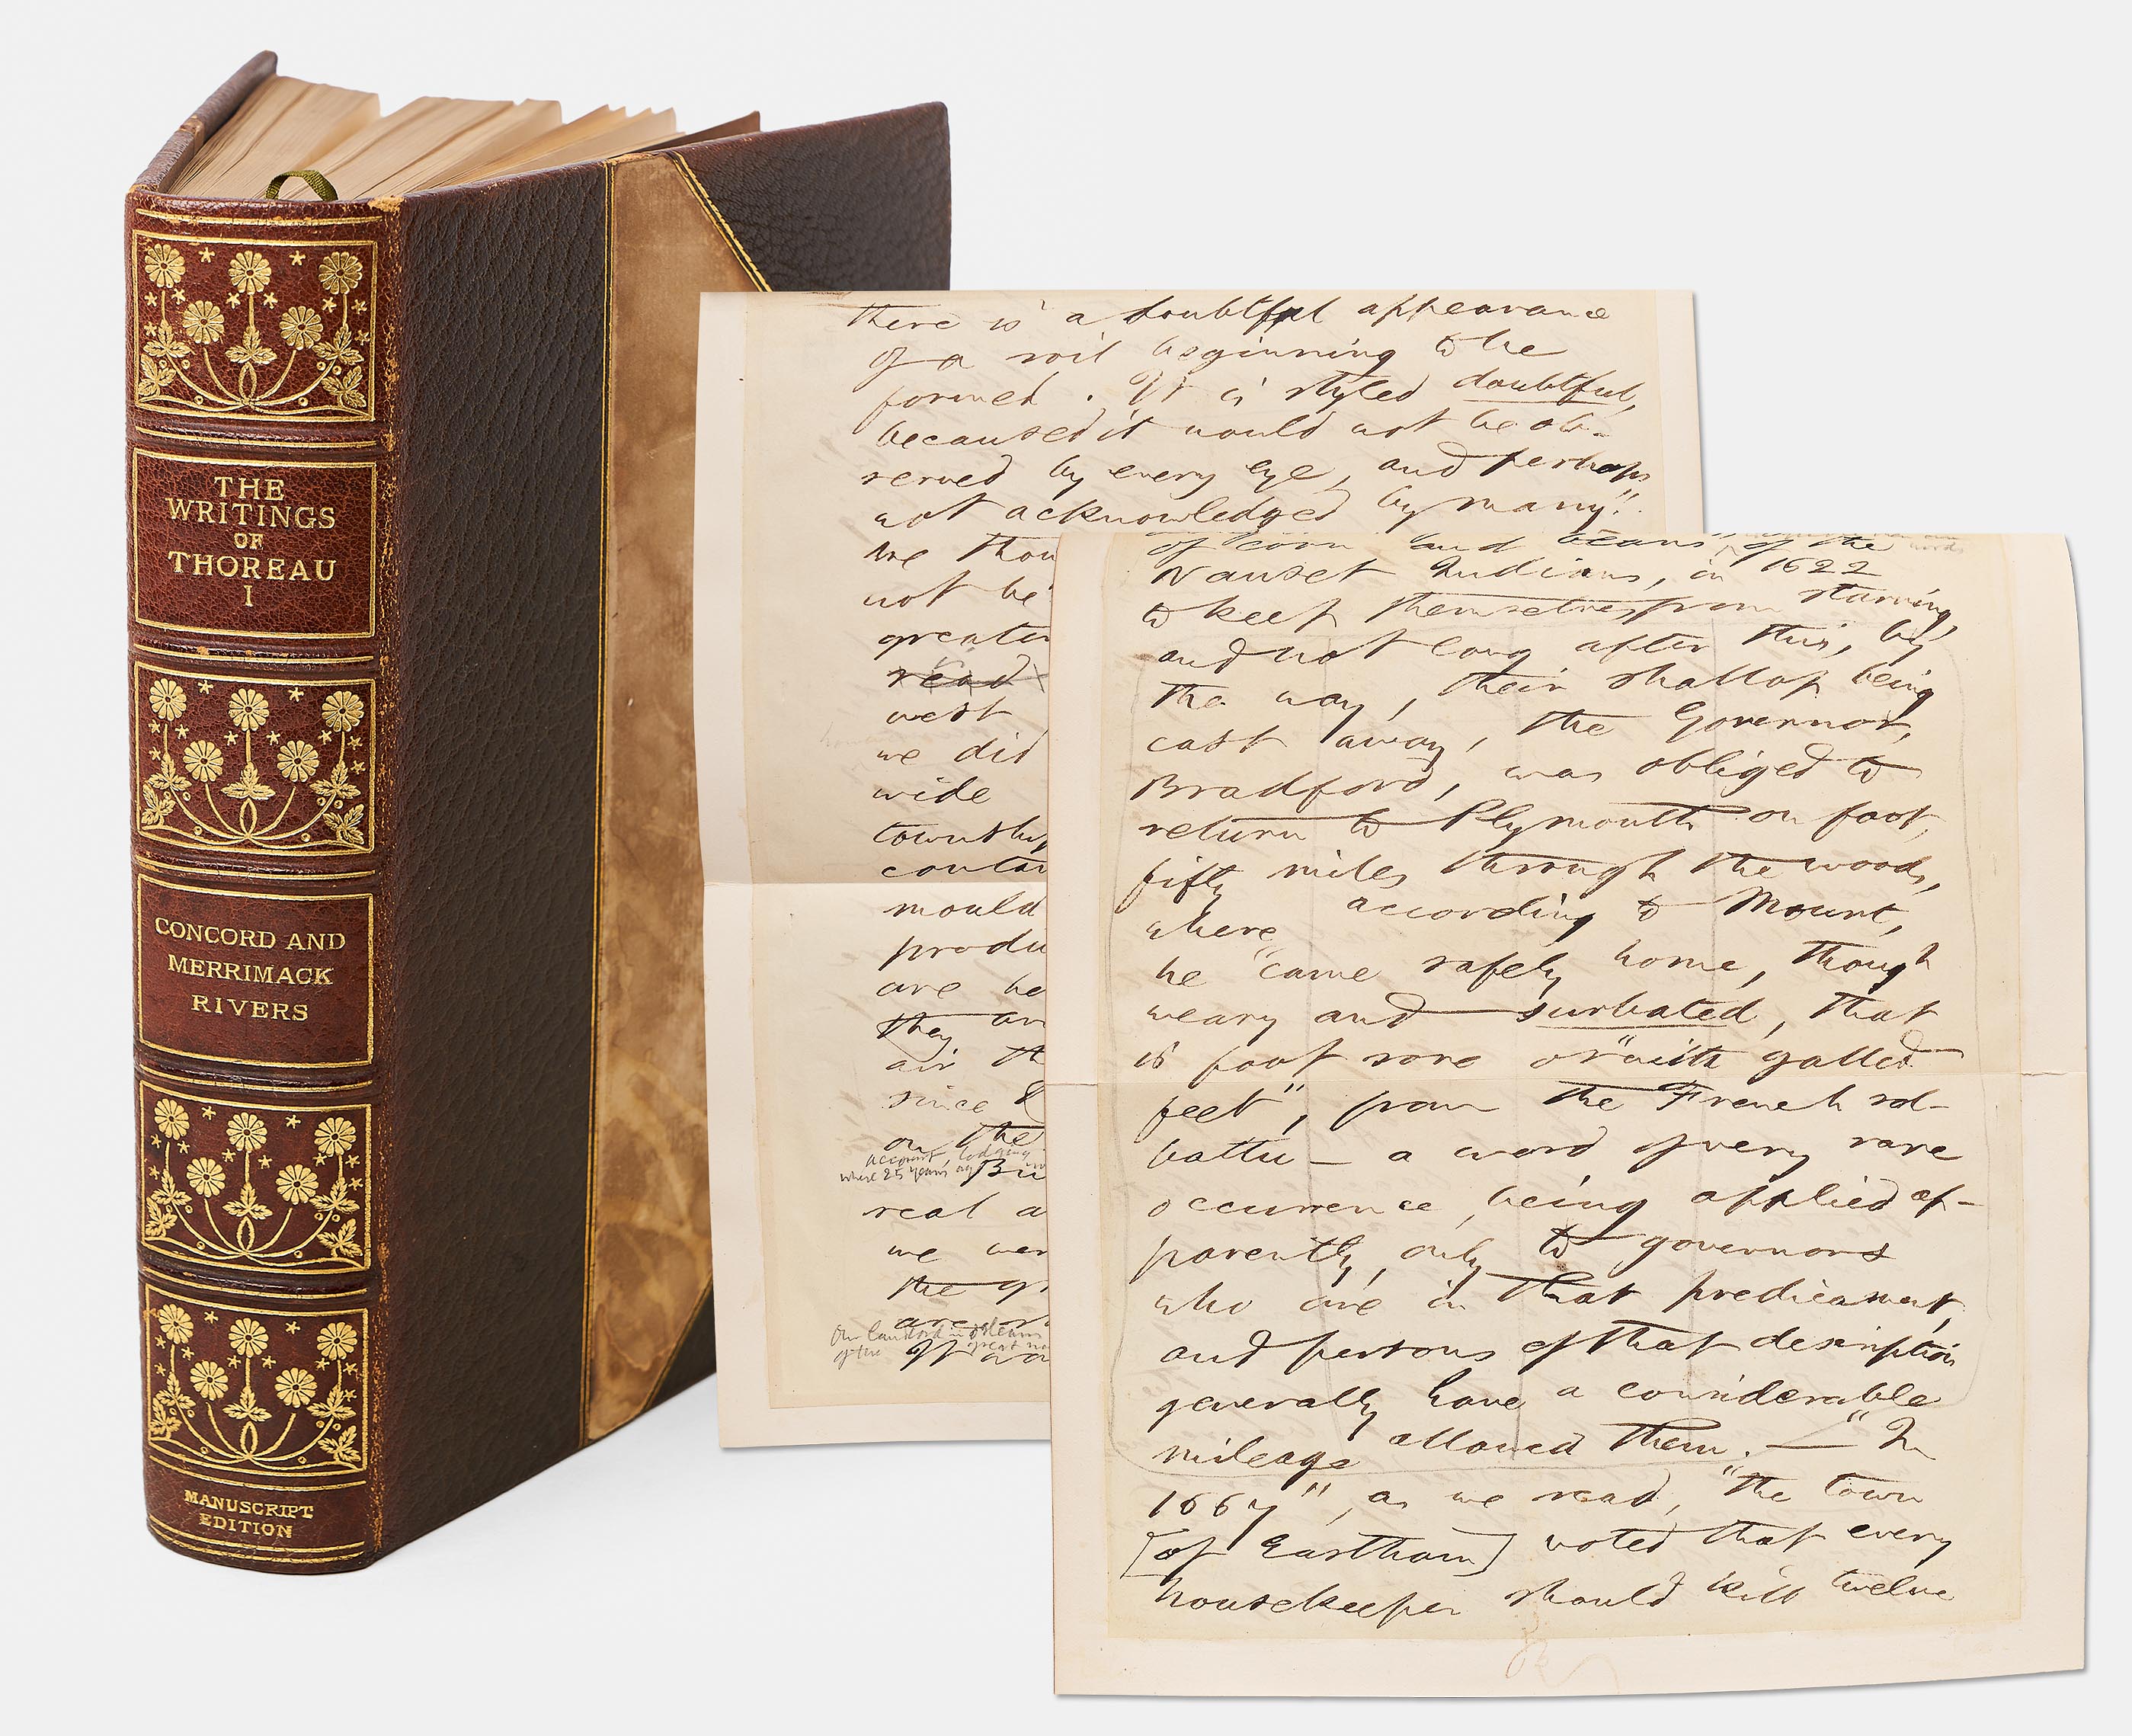 THE
WRITINGS
OF
THOREAU
I
CONCORD AND
MERRIMACK
RIVERS
MANUSCRIPT
EDITION
there is a doubtful appearance
of a soil beginning to be
formed. It is styled doubtful,
because it would not be ob-
served by every eye, and perhaps
not acknowledged by many."
We thou
not be
greater
read
west
we did
wide
township
contai
mould
produ
are be
they an
air th
since &
on the
account, lodging
where 25 years ago
real a
we wer
the gr
Our landlord in Orleans
of corn and beans of the
Nauset Indians, in 1622
to keep themselves from starving,
and not long after this, by
the way, their shallop being
cast away, the Governor,
Bradford, was obliged to
return to Plymouth on foot,
fifty miles through the woods,
where according to Mourt,
he "came safely home, though
weary and surbated, that
is foot sore or "with galled
feet", from the French sol-
battu — a word of very rare
occurrence, being applied ap-
parently, only to governors
who are in that predicament,
and persons of that description
generally have a considerable
mileage allowed them. — "In
1667", as we read, "the town
[of Eastham] voted that every
housekeeper should kill twelve